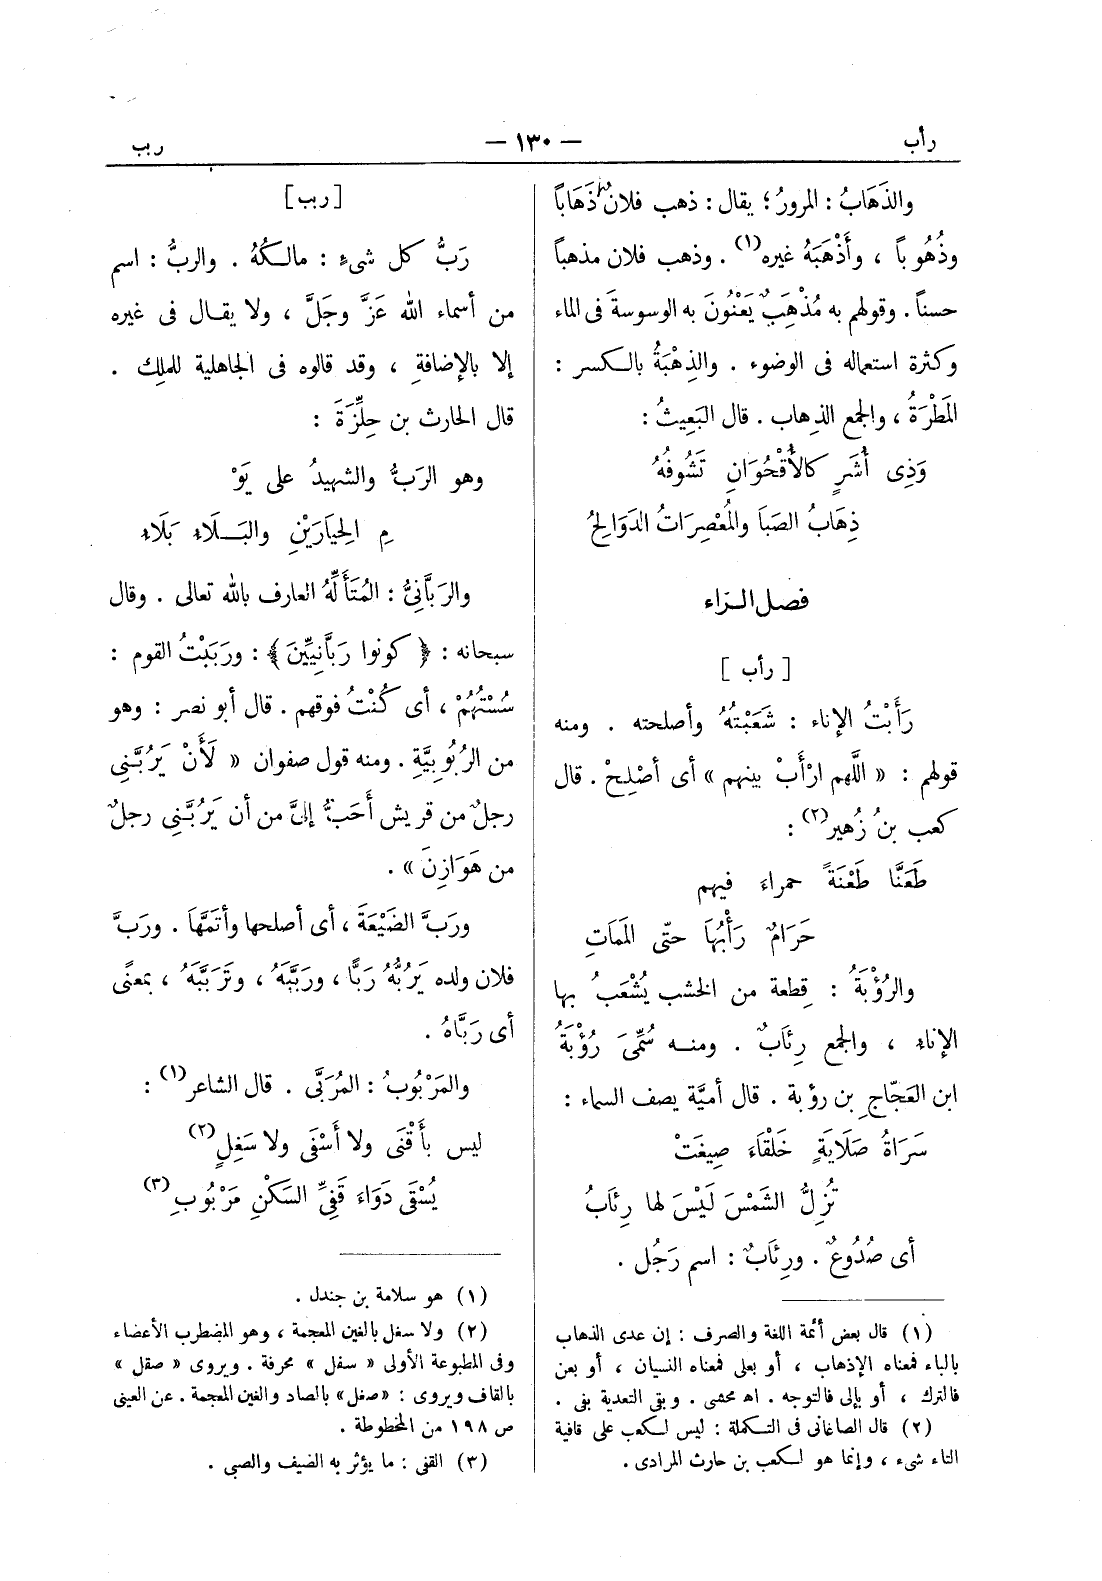 رأب
— ١٣٠ —
ربب
والذَهَابُ : المرورُ ؛ يقال : ذهب فلانٌ ذَهَاباً
وذُهُوباً ، وأَذْهَبَهُ غيره (١) . وذهب فلان مذهباً
حسناً . وقولهم به مُذْهَِبٌ يَعْنُونَ به الوسوسةَ فى الماء
وكثرة استعماله فى الوضوء . والذِهْبَةُ بالكسر :
المَطْرَةُ ، والجمع الذِهاب . قال البَعِيثُ :
وَذِى أُشَرٍ كالأُقْحُوَانِ تَشُوفُهُ
ذِهَابُ الصَبَا والمُعْصِرَاتُ الدَوَالِحُ
فصل الراء
[ رأب ]
رَأَبْتُ الإناء : شَعَبْتُهُ وأصلحته . ومنه
قولهم : « اللَّهم ارْأَبْ بينهم » أى أَصْلِحْ . قال
كعب بنُ زُهير (٢) :
طَعَنَّا طَعْنَةً حمراءَ فيهم
حَرَامٌ رَأْبُهَا حتّى المَمَاتِ
والرُؤْبَةُ : قِطعة من الخشب يُشْعَبُ بها
الإناء ، والجمع رِئَابٌ . ومنه سُمِّىَ رُؤْبَةُ
ابن العَجّاجِ بن رؤبة . قال أميَّة يصف السماء :
سَرَاةُ صَلَايَةٍ خَلْقَاءَ صِيغَتْ
تُزِلُّ الشَمْسَ لَيْسَ لها رِئَابُ
أى صُدُوعٌ . ورِئَابٌ : اسم رَجُل .
(١) قال بعض أئمة اللغة والصرف : إن عدى الذهاب
بالباء فمعناه الإذهاب ، أو بعلى فمعناه النسيان ، أو بعن
فالترك ، أو بإلى فالتوجه . اه محشى . وبقى التعدية بفى .
(٢) قال الصاغانى فى التكملة : ليس لكعب على قافية
التاء شىء ، وإنما هو لكعب بن حارث المرادى .
[ ربب ]
رَبُّ كل شىءٍ : مالكُهُ . والربُّ : اسم
من أسماء الله عَزَّ وجَلَّ ، ولا يقال فى غيره
إلا بالإضافةِ ، وقد قالوه فى الجاهلية للملِك .
قال الحارث بن حِلِّزَةَ :
وهو الرَبُّ والشهيدُ على يَوْ
مِ الحِيَارَيْنِ والبَلَاءِ بَلَاءِ
والرَبَّانِىُّ : المُتَأَلِّهُ العارف بالله تعالى . وقال
سبحانه : ﴿ كونوا رَبَّانِيِّينَ ﴾ : ورَبَبْتُ القوم :
سُسْتُهُمْ ، أى كُنْتُ فوقهم . قال أبو نصر : وهو
من الرُبُوبِيَّةِ . ومنه قول صفوان « لَأَنْ يَرُبَّنِى
رجلٌ من قريش أَحَبُّ إلىَّ من أن يَرُبَّنِى رجلٌ
من هَوَازِنَ » .
ورَبَّ الضَيْعَةَ ، أى أصلحها وأتمَّهَا . ورَبَّ
فلان ولده يَرُبُّهُ رَبًّا ، ورَبَّبَهُ ، وتَرَبَّبَهُ ، بمعنًى
أى رَبَّاهُ .
والمَرْبُوبُ : المُرَبَّى . قال الشاعر (١) :
ليس بأَقْنَى ولا أَسْفَى ولا سَغِلٍ (٢)
يُسْقَى دَوَاءَ قَفِىِّ السَكْنِ مَرْبُوبِ (٣)
(١) هو سلامة بن جندل .
(٢) ولا سغل بالغين المعجمة ، وهو المضطرب الأعضاء
وفى المطبوعة الأولى « سفل » محرفة . ويروى « صقل »
بالقاف ويروى : « صغل » بالصاد والغين المعجمة . عن العينى
ص ١٩٨ من المخطوطة .
(٣) القفى : ما يؤثر به الضيف والصبى .